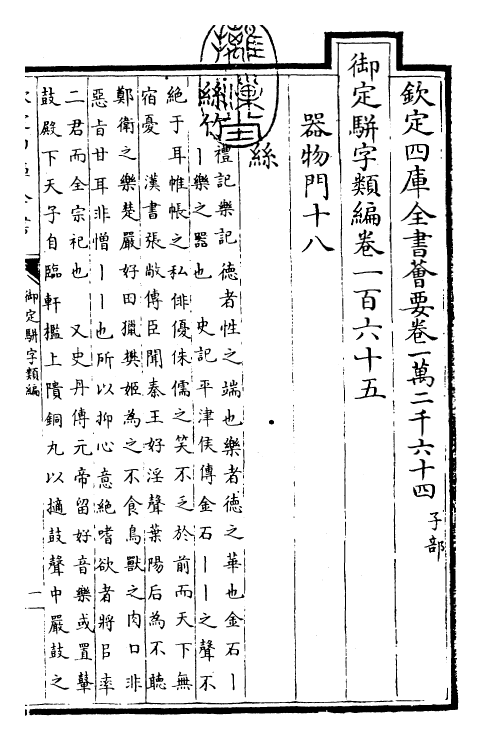 欽定四庫全書薈要卷一萬二千六十四 子部
御定駢字類編卷一百六十五
器物門十八
絲
絲竹 禮記樂記德者性之端也樂者德之華也金石丨
丨樂之器也 史記平津侯傳金石丨丨之聲不
絶于耳帷帳之私俳優侏儒之笑不乏於前而天下無
宿憂 漢書張敞傳臣聞秦王好淫聲葉陽后為不聽
鄭衛之樂楚嚴好田獵樊姬為之不食鳥獸之肉口非
惡旨甘耳非憎丨丨也所以抑心意絶嗜欲者將㠯率
二君而全宗祀也 又史丹傳元帝留好音樂或置鼙
鼓殿下天子自臨軒檻上隤銅丸以擿鼓聲中嚴鼓之
御定駢字類編
一